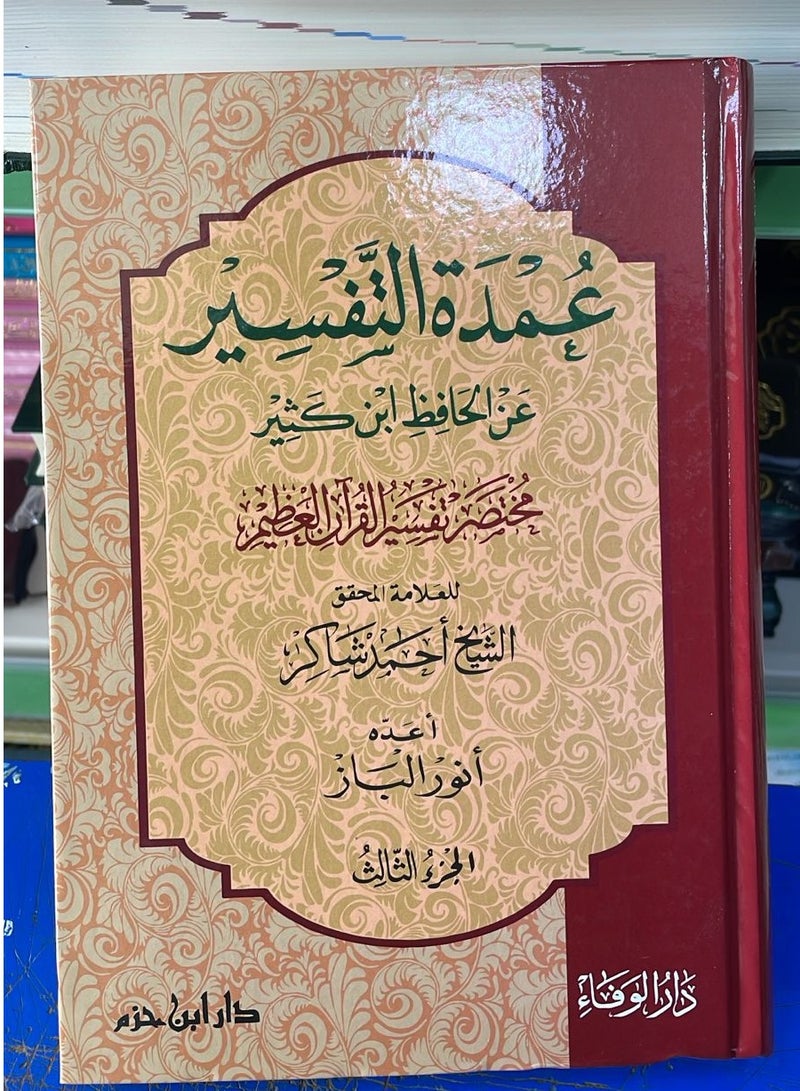 عُمْدَة التَّفْسِيْر
عَنْ الحَافِظِ ابْن كَثِيْر
مُخْتَصَر تَفْسِيْر القُرآن العَظِيْم
للعلامة المحقق
الشيخ أحمد شاكر
أعدّه
أنور الباز
الجزءُ الثّالِثُ
دار ابن حزم
دَارُ الوَفَاءِ